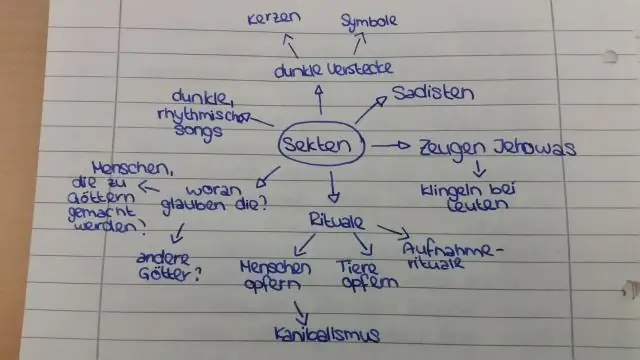 Kerzen
Symbole
dunkle Verstecke
Sadisten
dunkle,
rhythmische
songs
Sekten
Zeugen Jehowas
klingeln bei
Leuten
Menschen,
die zu
Göttern
gemacht
werden?
woran
glauben die?
andere
Götter?
Rituale
Menschen
opfern
Tiere
opfern
Aufnahme-
rituale
Kanibalismus